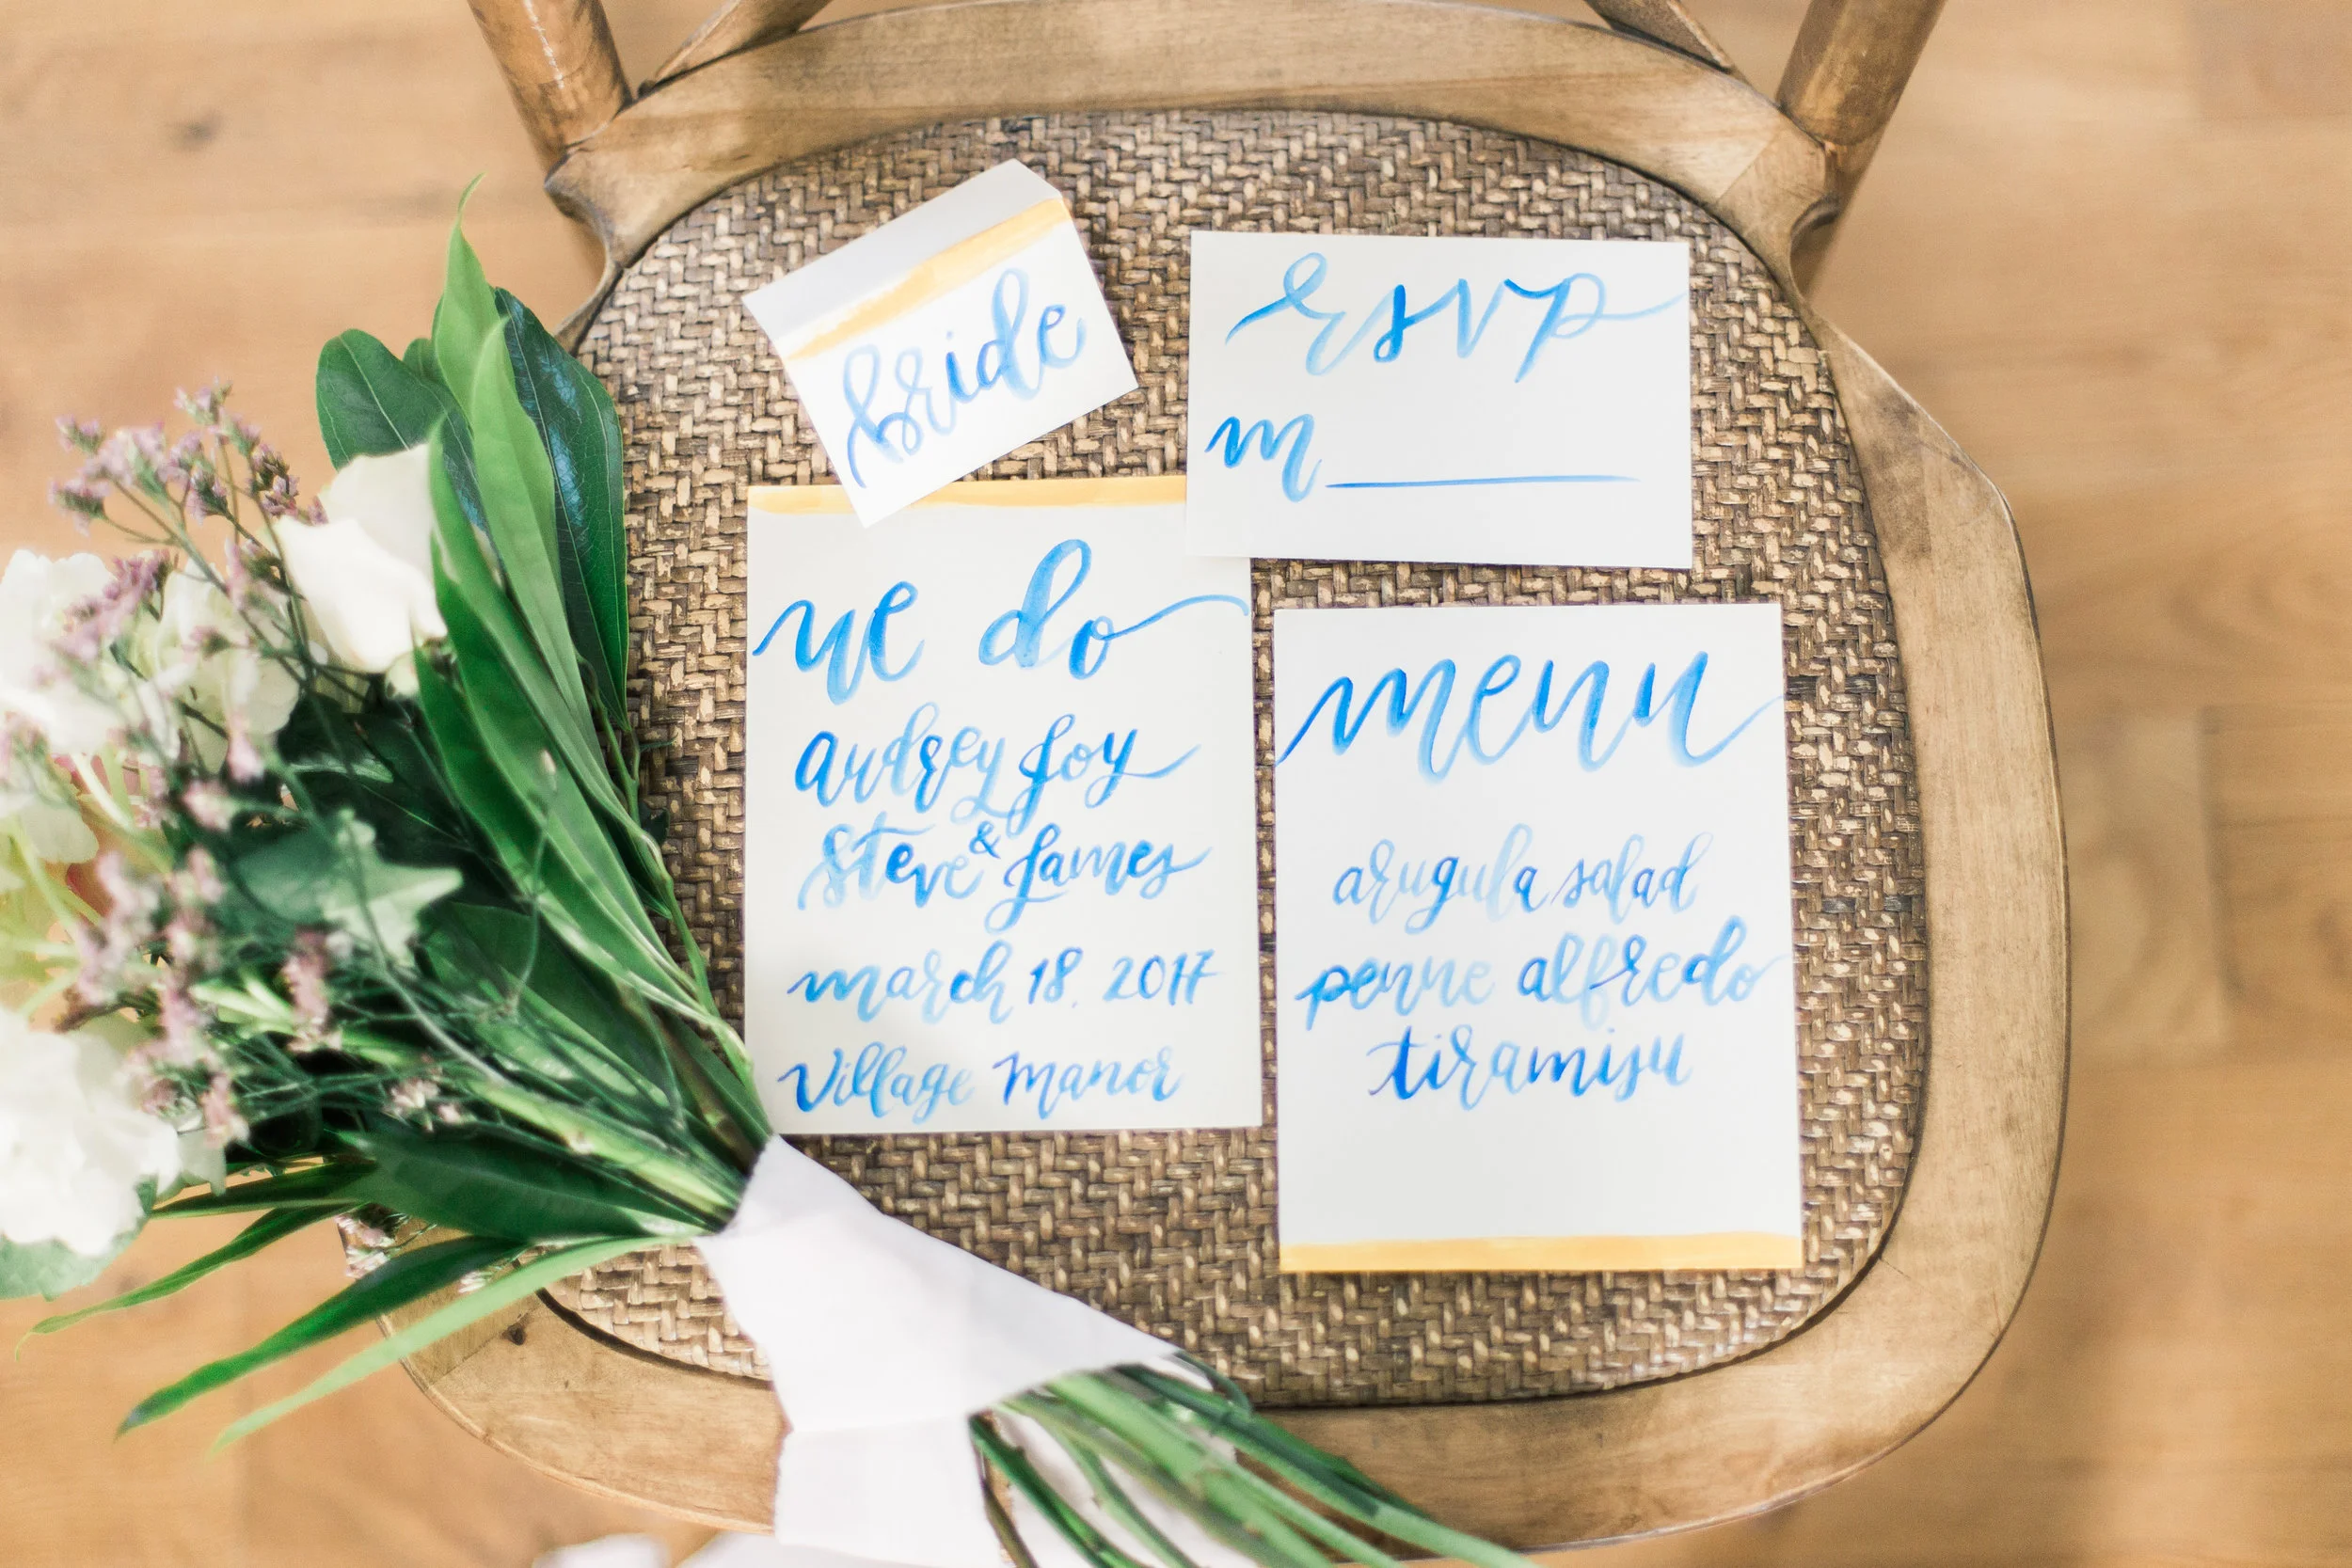 bride
rsvp
m
we do
audrey joy
&
steve james
march 18, 2017
Village Manor
menu
arugula salad
penne alfredo
tiramisu